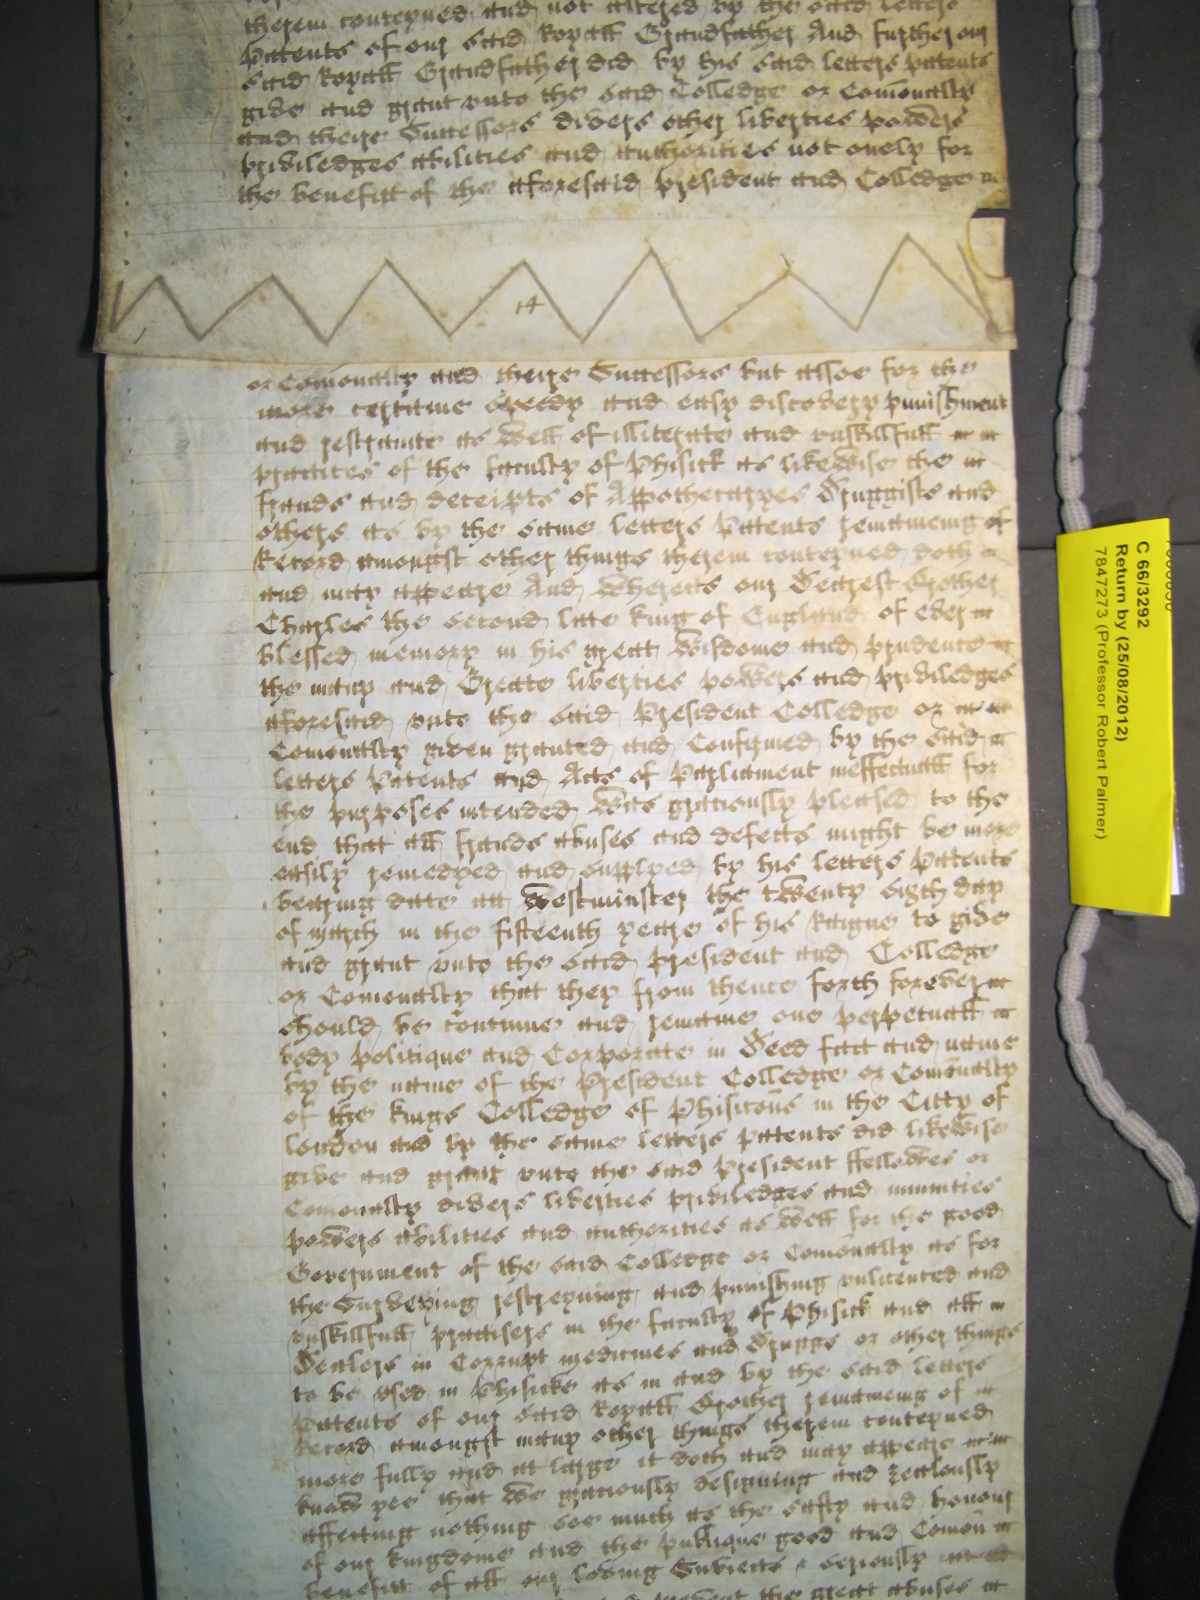 therein conteyned and not altered by the said letters
Patents of our said Royall Grandfather And further our
said Royall Grandfather did by his said letters patents
give and graunt unto the said Colledge or Comonalty
and theire Successors divers other liberties powers
priviledges abilities and authorities not onely for
the benefitt of the aforesaid president and Colledge
14
or Comonalty and theire Successors but alsoe for the
more certaine speedy and easy discovery punishment
and restrainte as well of illiterate and unskillfull
practices of the faculty of Phisick as likewise the
frauds and deceipts of Appothecaryes Druggists and
others as by the same letters Patents remaineing of
Record amongst other things therein conteyned doth
and may appeare And Whereas our Dearest Brother
Charles the second late King of England of ever
blessed memory in his great Wisdome and prudence
the many and Greate liberties powers and priviledges
aforesaid unto the said President Colledge or
Comonalty given graunted and Confirmed by the said
letters Patents and Acts of Parliament ineffectuall for
the purposes intended Was graciously pleased to the
end that all frauds abuses and defects might be more
easily remedyed and supplyed by his letters Patents
bearing date att Westminster the twenty sixth day
of march in the fifteenth yeare of his Raigne to give
and graunt unto the said president and Colledge
or Comonalty that they from thence forth forever
should be continue and remaine one perpetuall
body politique and Corporate in Deed fact and name
by the name of the President Colledge or Comonalty
of the kings Colledge of Phisitons in the Citty of
london and by the same letters patents did likewise
give and graunt unto the said President ffellowes or
Comonalty divers liberties priviledges and imunities
powers abilities and authorities as well for the good
Government of the said Colledge or Comonalty as for
the Surveying restreyning and punishing unlicented and
unskillfull practisers in the faculty of Phisick and all
Dealers in Corrupt medicines and Druggs or other things
to be used in Phisicke as in and by the said letters
Patents of our said Royall Brother remaineing of
Record amongst many other things therein conteyned
more fully and at large it doth and may appeare
know yee that we graciously designing and zealously
affecting nothing soe much as the safty and honour
of our kingdome and the publique good and Comon
benefitt of all our loving Subiects seriously
the great abuses
C 66/3292
Return by (25/08/2012)
7847273 (Professor Robert Palmer)